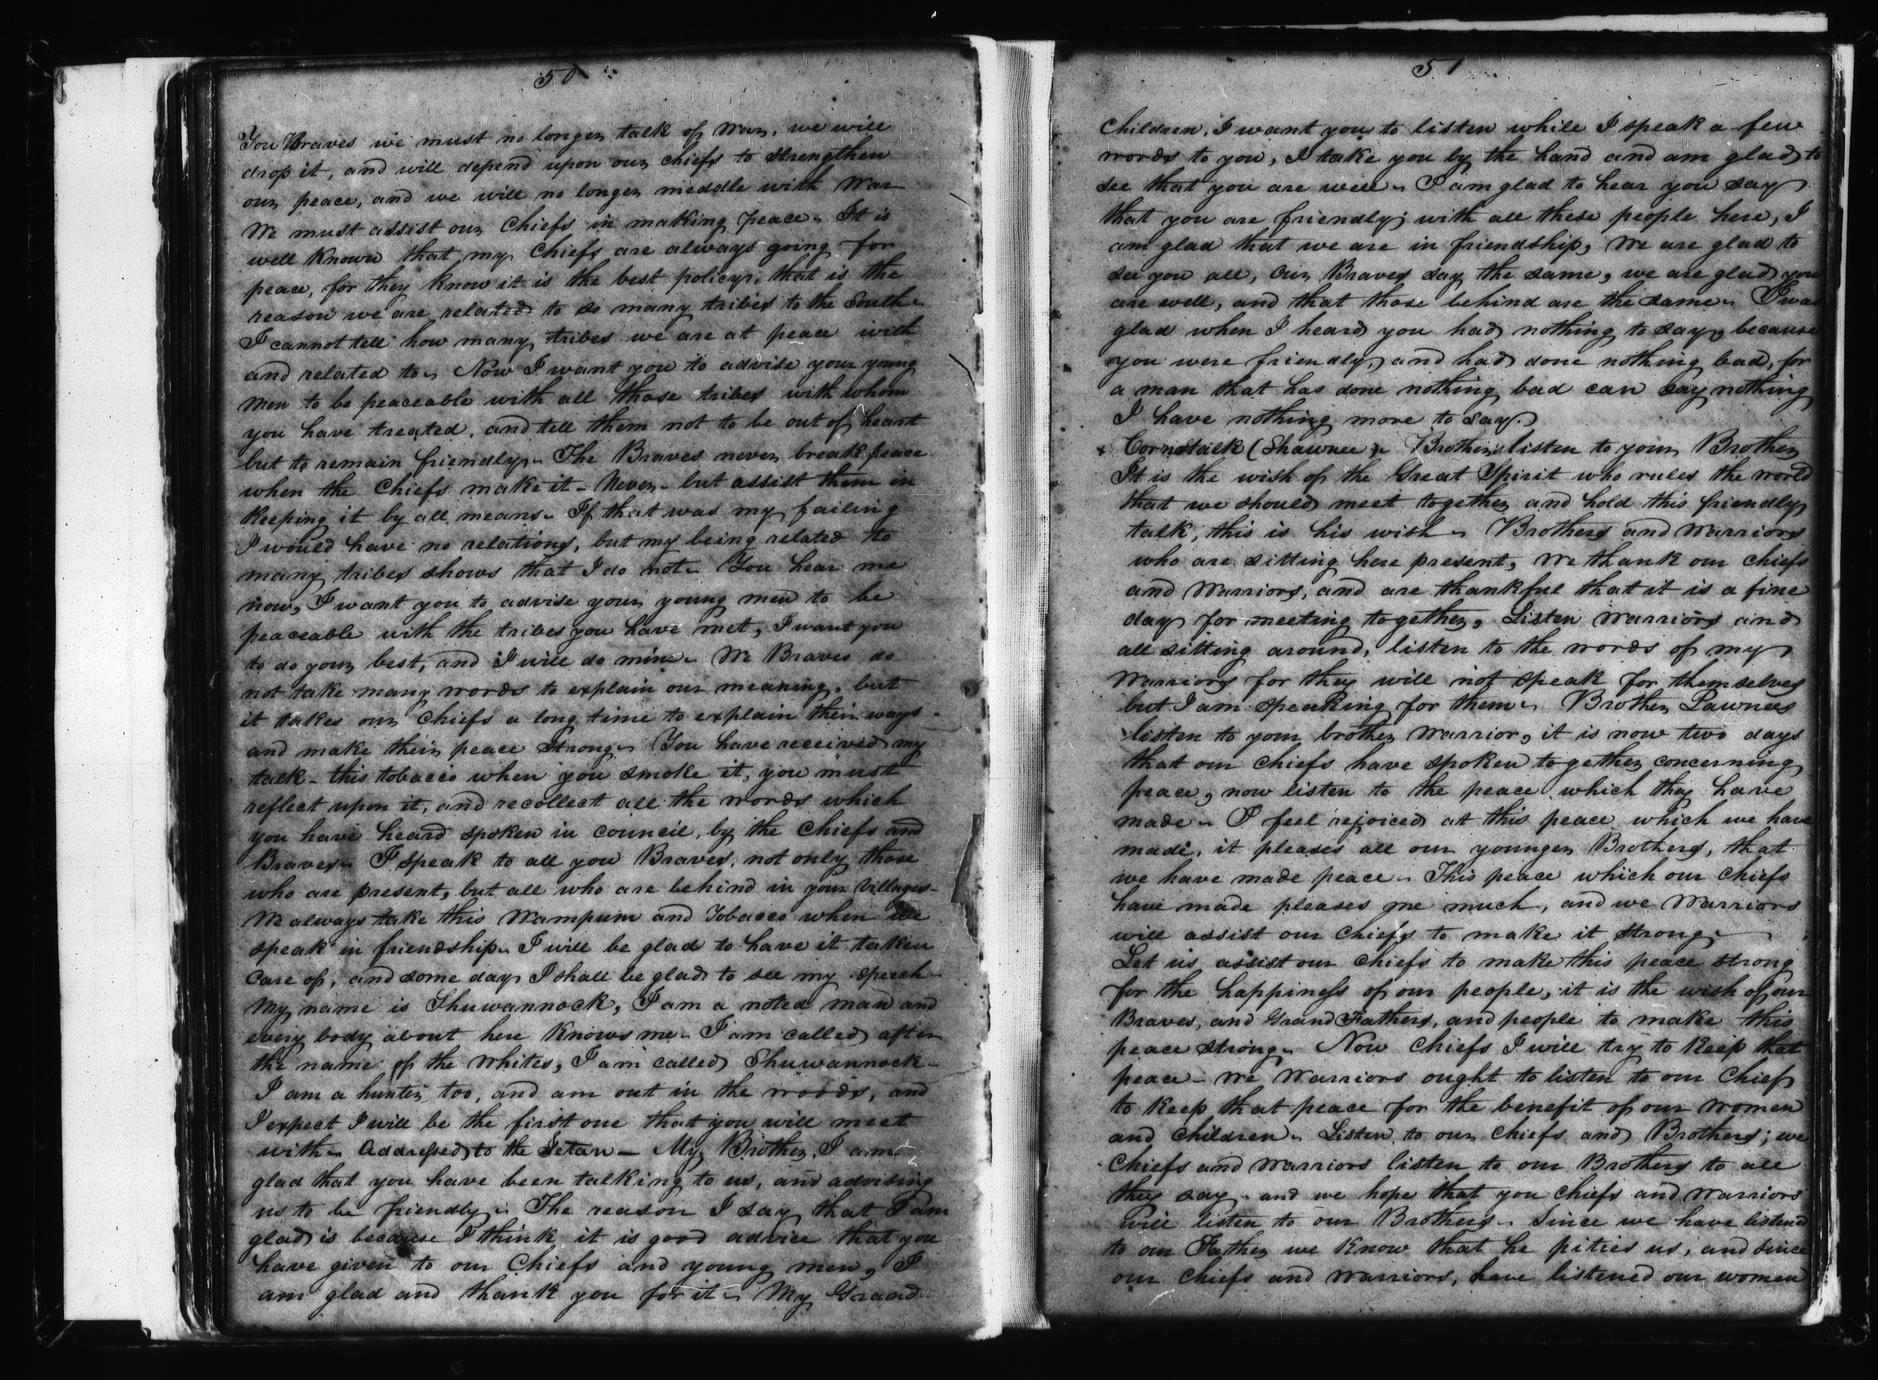 50
You Braves we must no longer talk of War, we will
drop it, and will depend upon our chiefs to strengthen
our peace, and we will no longer meddle with War
We must assist our Chiefs in making peace. It is
well known that my Chiefs are always going for
peace, for they know it is the best policy, that is the
reason we are related to so many tribes to the South.
I cannot tell how many tribes we are at peace with
and related to. Now I want you to advise your young
men to be peaceable with all those tribes with whom
you have treated, and tell them not to be out of heart
but to remain friendly. The Braves never break peace
when the Chiefs make it - Never - but assist them in
keeping it by all means. If that was my failing
I would have no relations, but my being related to
many tribes shows that I do not. You hear me
now, I want you to advise your young men to be
peaceable with the tribes you have met, I want you
to do your best, and I will do mine. We Braves do
not take many words to explain our meaning, but
it takes our Chiefs a long time to explain their ways -
and make their peace strong. You have received my
talk - this tobacco when you smoke it, you must
reflect upon it, and recollect all the words which
you have heard spoken in council, by the Chiefs and
Braves. I speak to all you Braves, not only those
who are present, but all who are behind in your Villages -
We always take this Wampum and Tobacco when we
speak in friendship. I will be glad to have it taken
care of, and some day I shall be glad to see my speech
My name is Shuwannock, I am a noted man and
every body about here knows me. I am called after
the name of the Whites, I am called Shuwannock -
I am a hunter too, and am out in the woods, and
I expect I will be the first one that you will meet
with. Addressed to the Ietan - My Brother, I am
glad that you have been talking to us, and advising
us to be friendly. The reason I say that I am
glad is because I think it is good advice that you
have given to our Chiefs and young men, I
am glad and thank you for it. My Grand
51
Children, I want you to listen while I speak a few
words to you, I take you by the hand and am glad to
see that you are well. I am glad to hear you say
that you are friendly with all these people here, I
am glad that we are in friendship, We are glad to
see you all, Our Braves say the same, we are glad you
are well, and that those behind are the same. I was
glad when I heard you had nothing to say, because
you were friendly, and had done nothing bad, for
a man that has done nothing bad can say nothing
I have nothing more to say.
Cornstalk (Shawnee). Brothers listen to your Brother
It is the wish of the Great Spirit who rules the world
that we should meet together and hold this friendly
talk, this is his wish. Brothers and Warriors
who are sitting here present, We thank our Chiefs
and Warriors, and are thankful that it is a fine
day for meeting together, Listen Warriors and
all sitting around, listen to the words of my
Warriors for they will not speak for themselves
but I am speaking for them. Brother Pawnees
listen to your brother Warrior, it is now two days
that our Chiefs have spoken together concerning
peace, now listen to the peace which they have
made. I feel rejoiced at this peace which we have
made, it pleases all our younger Brothers, that
we have made peace. This peace which our Chiefs
have made pleases me much, and we Warriors
will assist our Chiefs to make it strong.
Let us assist our Chiefs to make this peace strong
for the happiness of our people, it is the wish of our
Braves, and Grand Fathers, and people to make this
peace strong. Now Chiefs I will try to keep that
peace - We Warriors ought to listen to our Chiefs
to keep that peace for the benefit of our women
and children. Listen to our Chiefs and Brothers; we
Chiefs and Warriors listen to our Brothers to all
they say - and we hope that you Chiefs and Warriors
will listen to our Brothers. Since we have listened
to our Father we know that he pities us, and since
our Chiefs and Warriors, have listened our women